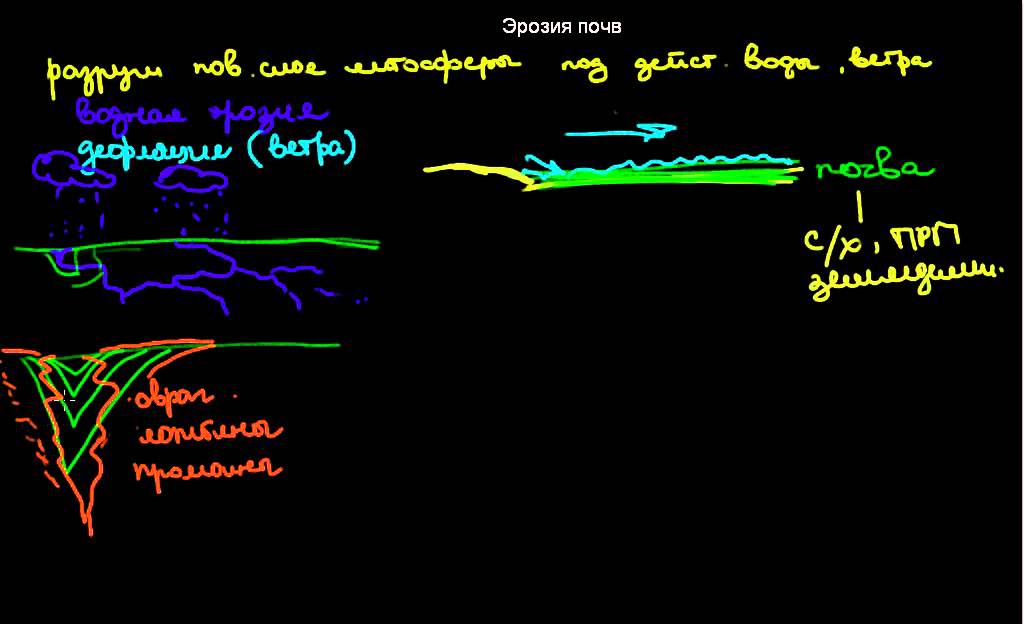 Эрозия почв
разруш пов. слоев литосферы под дейст. воды, ветра
водная эрозия
дефляция (ветра)
почва
с/х, ПРП
земледелии.
овраг.
ложбины
промоины